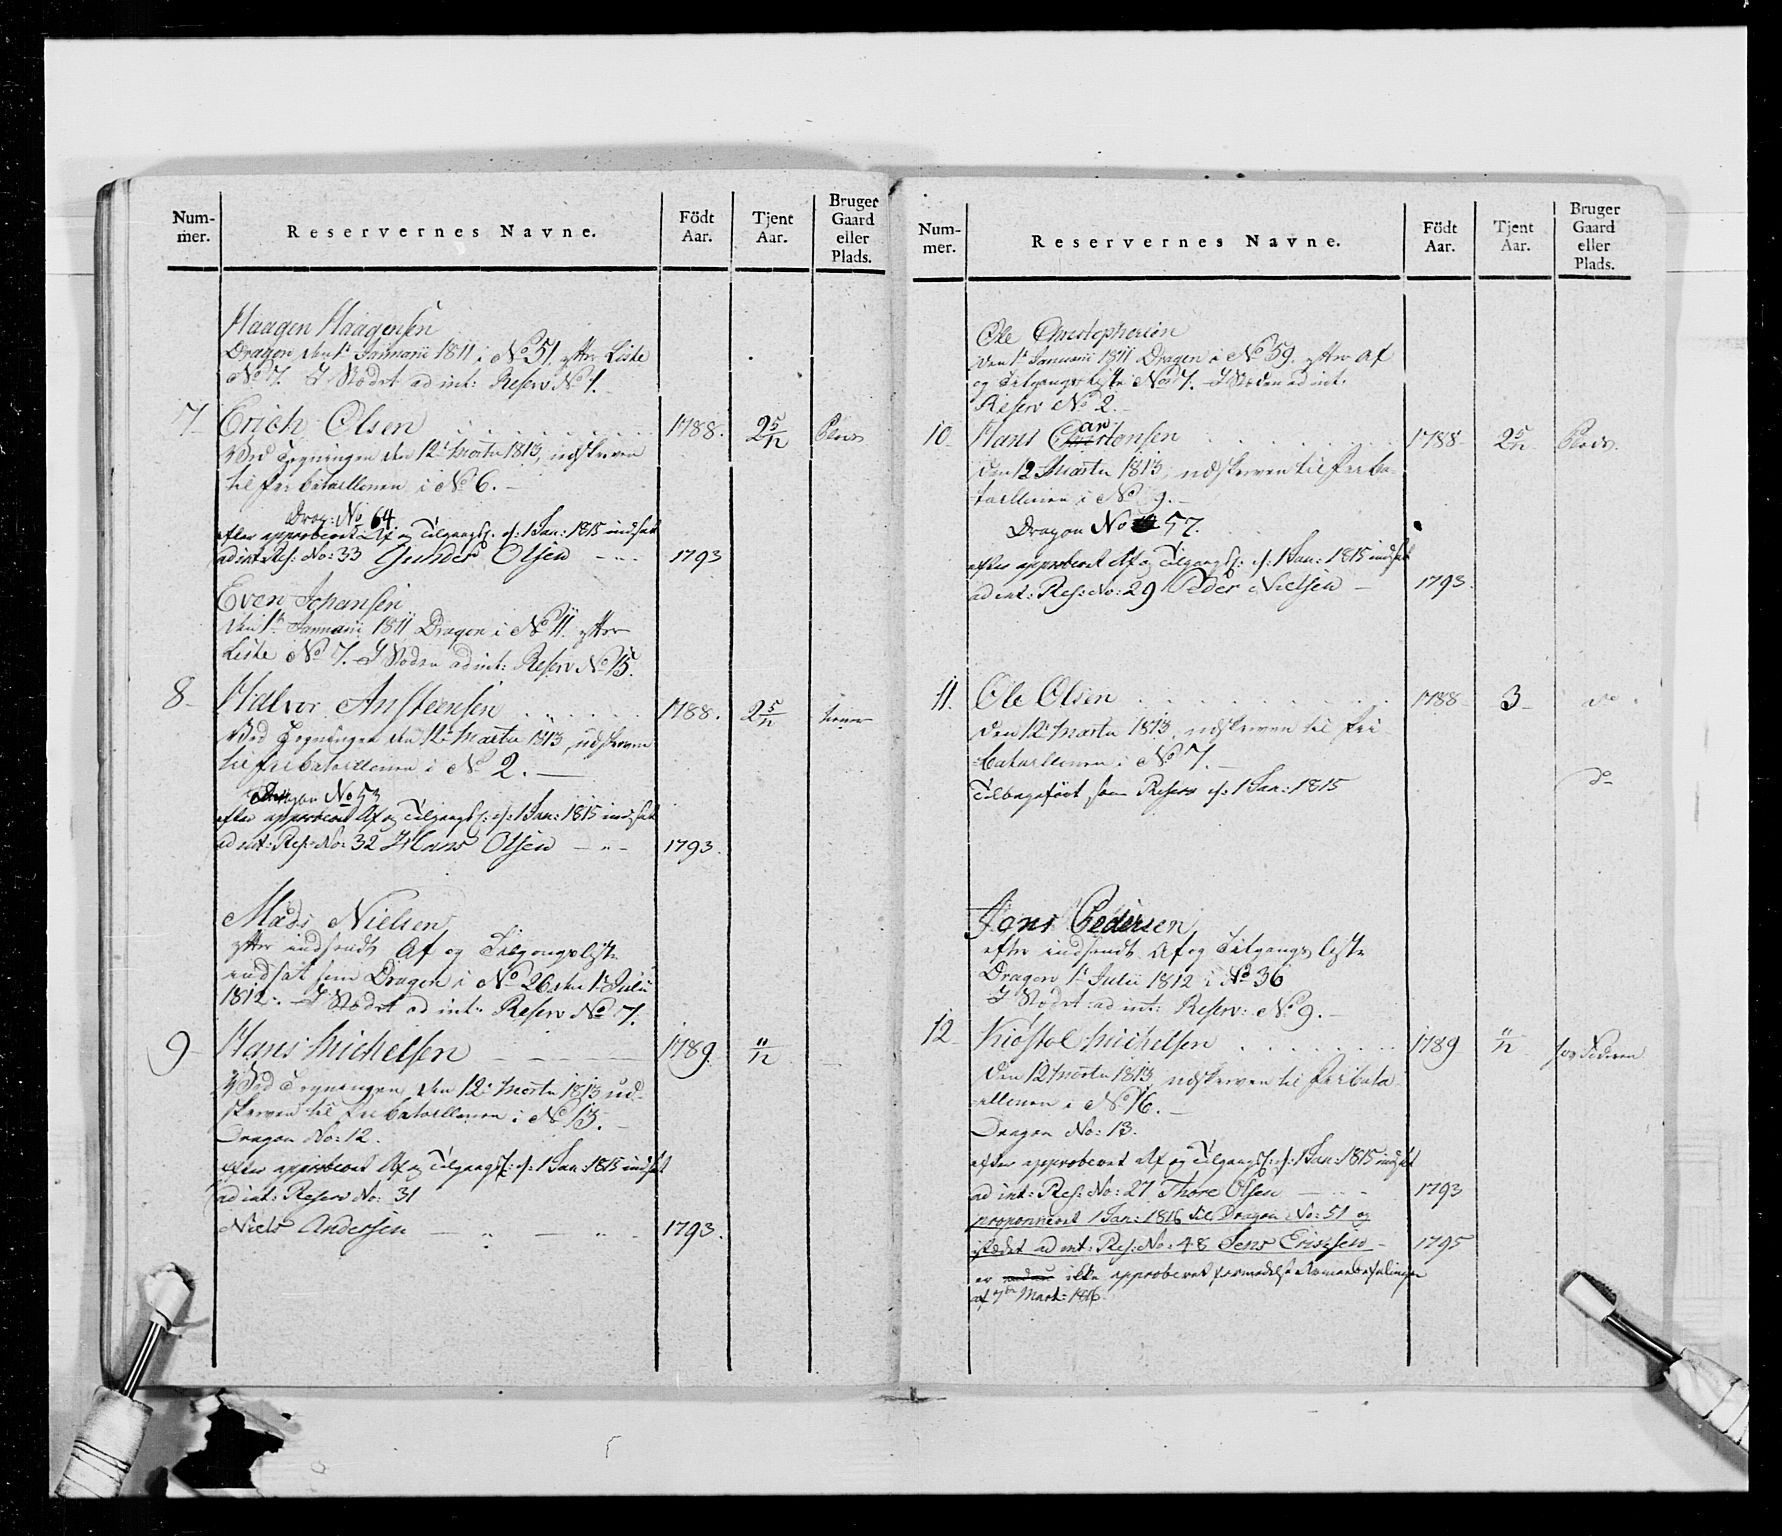 Num-
mer.
Reservernes Navne.
Födt
Aar.
Tjent
Aar.
Bruger
Gaard
eller
Plads.
Haagen Haagensen
Dragon den 1te Januarii 1811 i No 51 efter Liste
No 7. I Stædet ad int: Reserv No 1.
7 Erich Olsen 1788. 2 5/12 Plads
Ved Tegningen den 12te Martii 1813, udskreven
til fribataillonen i No 6.
Drag: No 64.
efter approberet Af og Tilgangsl: af 1 Jan: 1815 indsat
ad int: Res: No: 33 Gunder Olsen 1793
Even Johansen
den 1te Januarii 1811 Dragon i No 11 efter
Liste No 7. I Stæden ad int: Reserv No 15.
8 Halvor Ansteensen 1788. 2 5/12
Ved Tegningen den 12te Martii 1813, udskreven
til fribataillonen i No 2.
Dragon No 53
efter approberet Af og Tilgangsl: af 1 Jan: 1815 indsat
ad int: Res: No: 32 Hans Olsen 1793.
Mads Nielsen
efter indsendt Af og Tilgangsliste
indsat som Dragon i No 26 den 1te Julii
1812. I Stædet ad int: Reserv No 7.
9 Hans Michelsen 1789 11/12
Ved Tegningen den 12te Martii 1813 ud-
skreven til fribataillonen i No 13.
Dragon No: 12.
efter approberet Af og Tilgangsl: af 1 Jan: 1815 indsat
ad int: Reserv No: 31
Niels Andersen 1793.
Num-
mer.
Reservernes Navne.
Födt
Aar.
Tjent
Aar.
Bruger
Gaard
eller
Plads.
Ole Christophersen
den 1te Januarii 1811 Dragon i No 59 efter Af
og Tilgangsliste No 7. I Stæden ad int:
Reserv No 2.
10 Hans Carstensen 1788 2 5/12 Plads.
den 12 Martii 1813, udskreven til friba-
taillonen i No 9.
Dragon No 57.
efter approberet Af og Tilgangsl: af 1 Jan: 1815 indsat
ad int: Res: No: 29 Peder Nielsen 1793.
11. Ole Olsen 1788 3 do
den 12te Martii 1813, udskreven til fri-
bataillonen i No 7.
Tilbageført som Reserv af 1 Jan: 1815 do
Jens Pedersen
efter indsendt Af og Tilgangsliste
Dragon 1te Julii 1812 i No 36
I Stædet ad int: Reserv: No 9.
12 Kiøstol Michelsen 1789 11/12 hos Faderen
den 12 Martii 1813, udskreven til fribata-
illonen i No 16.
Dragon No: 13.
efter approberet Af og Tilgangsl: af 1 Jan: 1815 indsat
ad int: Res: No: 27 Thore Olsen 1793
proponeret 1 Jan: 1816 til Dragon No: 51 og
istædet ad int: Res: No: 48 Jens Erichsen 1795
er ikke approberet formedelst
af 7de Marts 1816